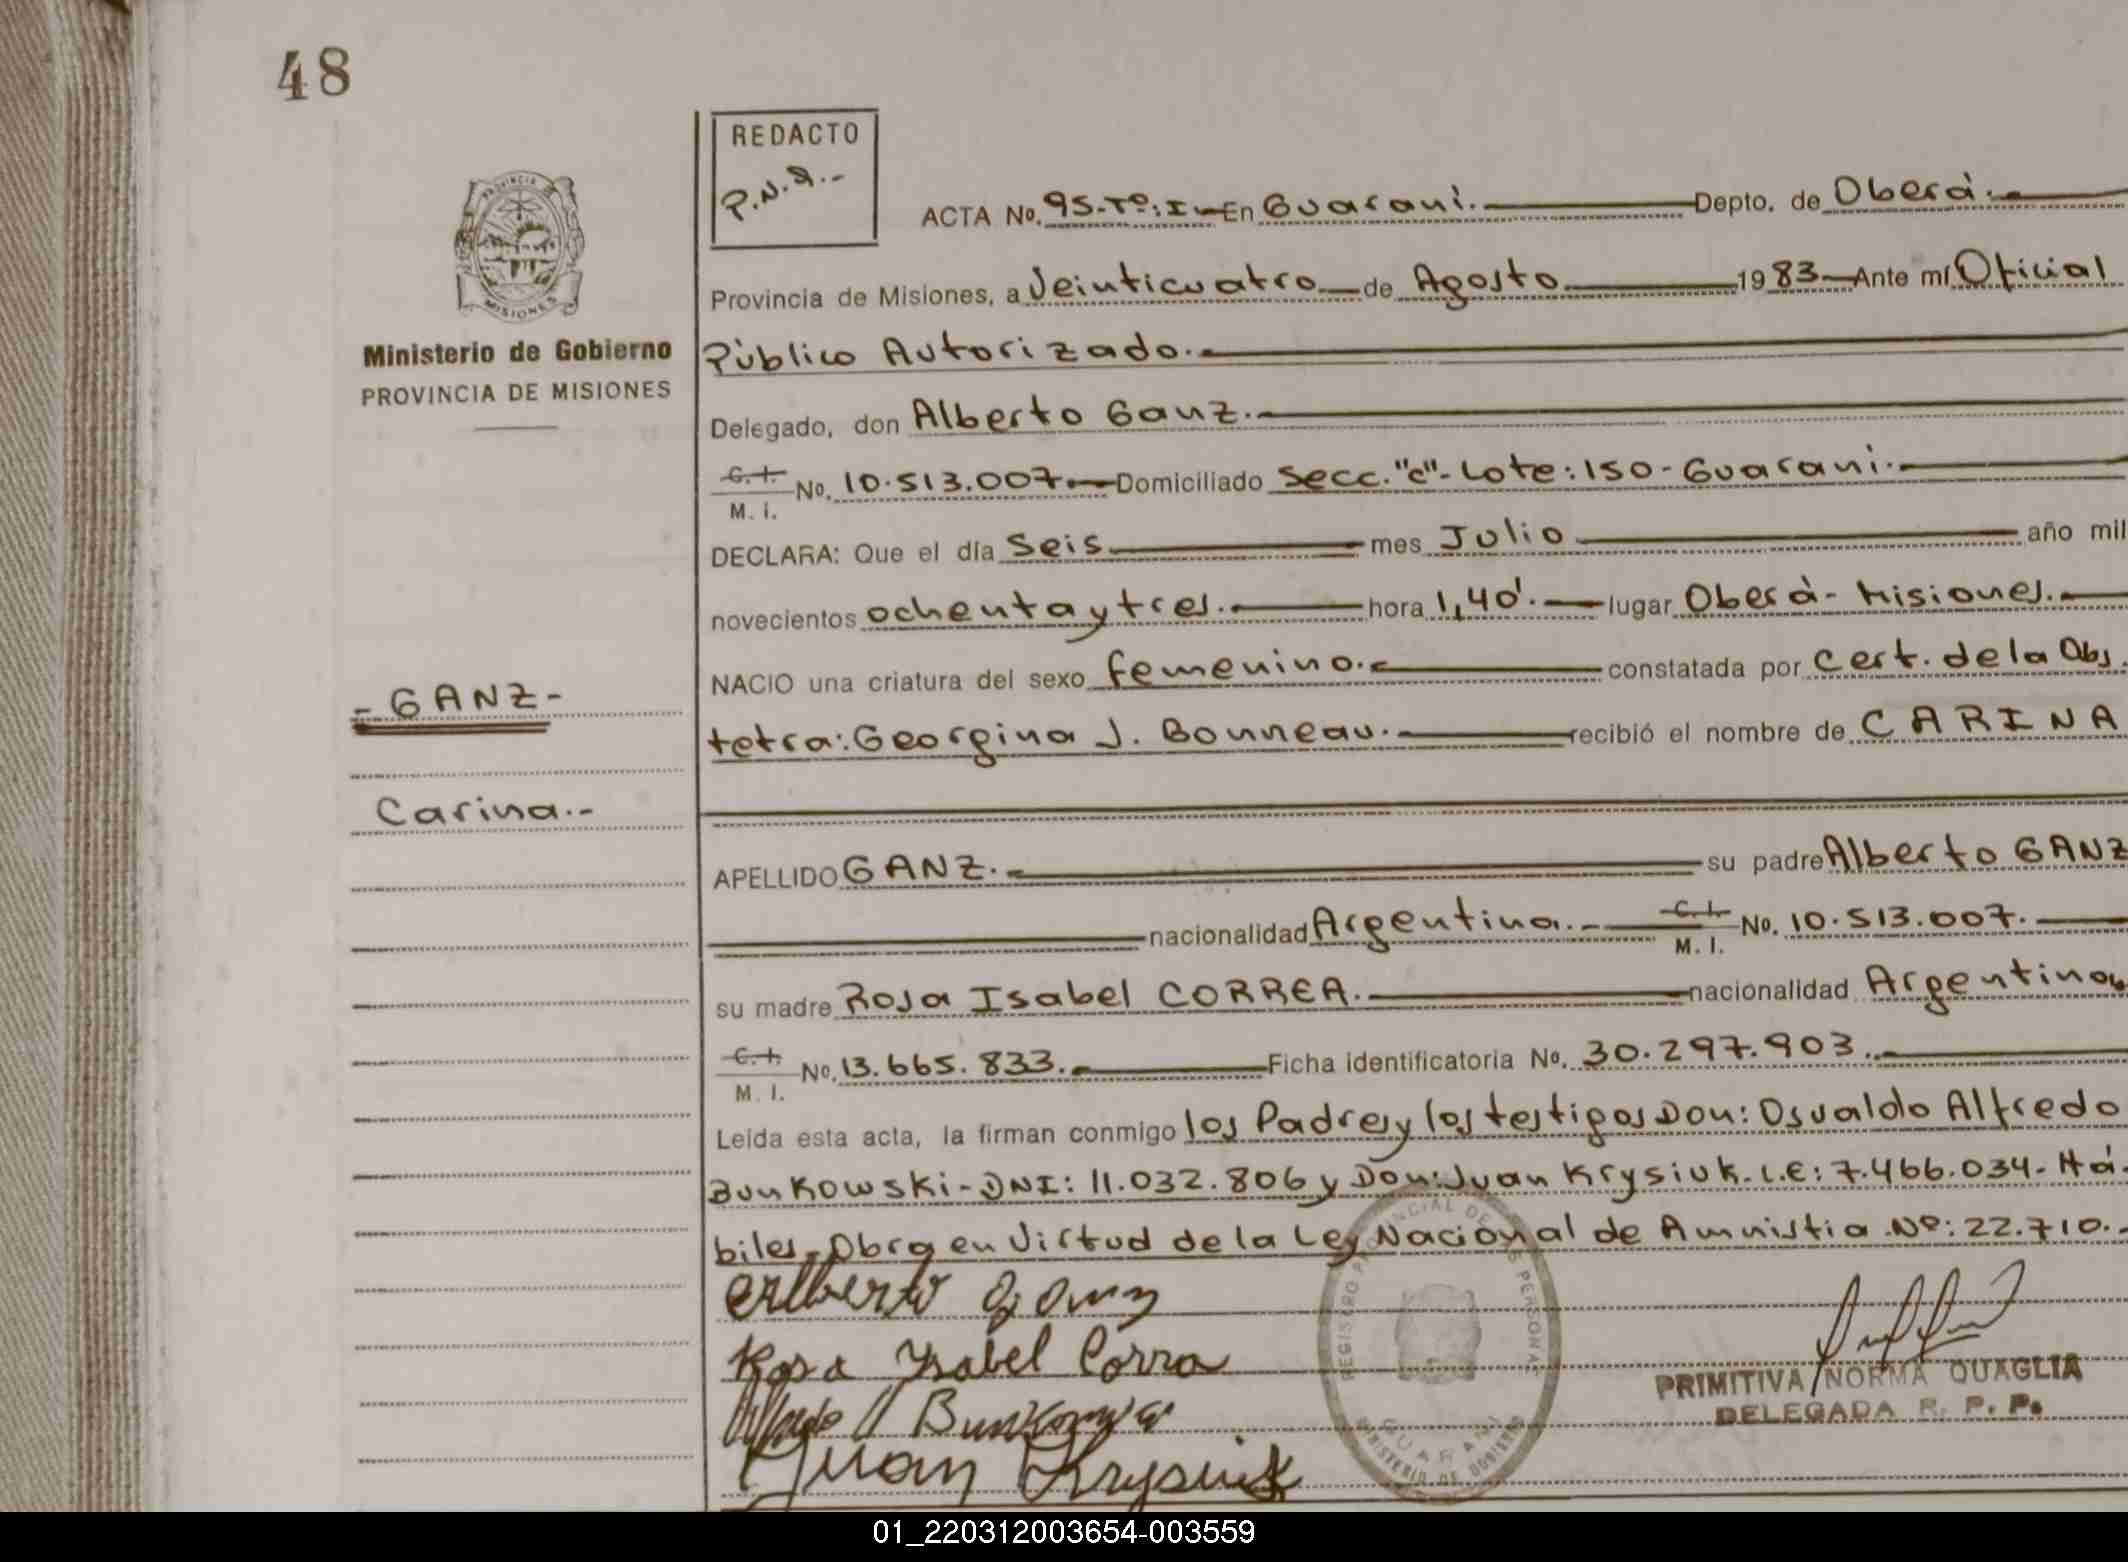 48
REDACTO
P.N.Q.-
ACTA No. 95-Tº:I- En Guaraní. Depto. de Oberá.
PROVINCIA
MISIONES
Provincia de Misiones, a Veinticuatro de Agosto 1983 Ante mí Oficial
Ministerio de Gobierno
Público Autorizado.
PROVINCIA DE MISIONES
Delegado, don Alberto Ganz.
C.I. M. I. No. 10.513.007 Domiciliado Secc. "C"- Lote: 150 - Guaraní.
DECLARA: Que el día Seis mes Julio año mil
novecientos ochenta y tres. hora 1,40'. lugar Oberá- Misiones.
NACIO una criatura del sexo femenino. constatada por Cert. de la Obs.
- GANZ -
tetra: Georgina J. Bonneau. recibió el nombre de CARINA
Carina.-
APELLIDO GANZ. su padre Alberto GANZ
nacionalidad Argentina. C.I. M. I. No. 10.513.007.
su madre Rosa Isabel CORREA. nacionalidad Argentina
C.I. M. I. No. 13.665.833. Ficha identificatoria No. 30.297.903.
Leída esta acta, la firman conmigo los Padres y los testigos Don: Osvaldo Alfredo
Bunkowski - DNI: 11.032.806 y Don: Juan Krysiuk. L.E: 7.466.034- Há-
biles. Obra en Virtud de la Ley Nacional de Amnistia Nº: 22.710.
Alberto Ganz
Rosa Ysabel Corra
Bunkowski
Juan Krysiuk
REGISTRO PROVINCIAL DE LAS PERSONAS
GUARANI
MINISTERIO DE GOBIERNO
PRIMITIVA NORMA QUAGLIA
DELEGADA R. P. P.
01_220312003654-003559